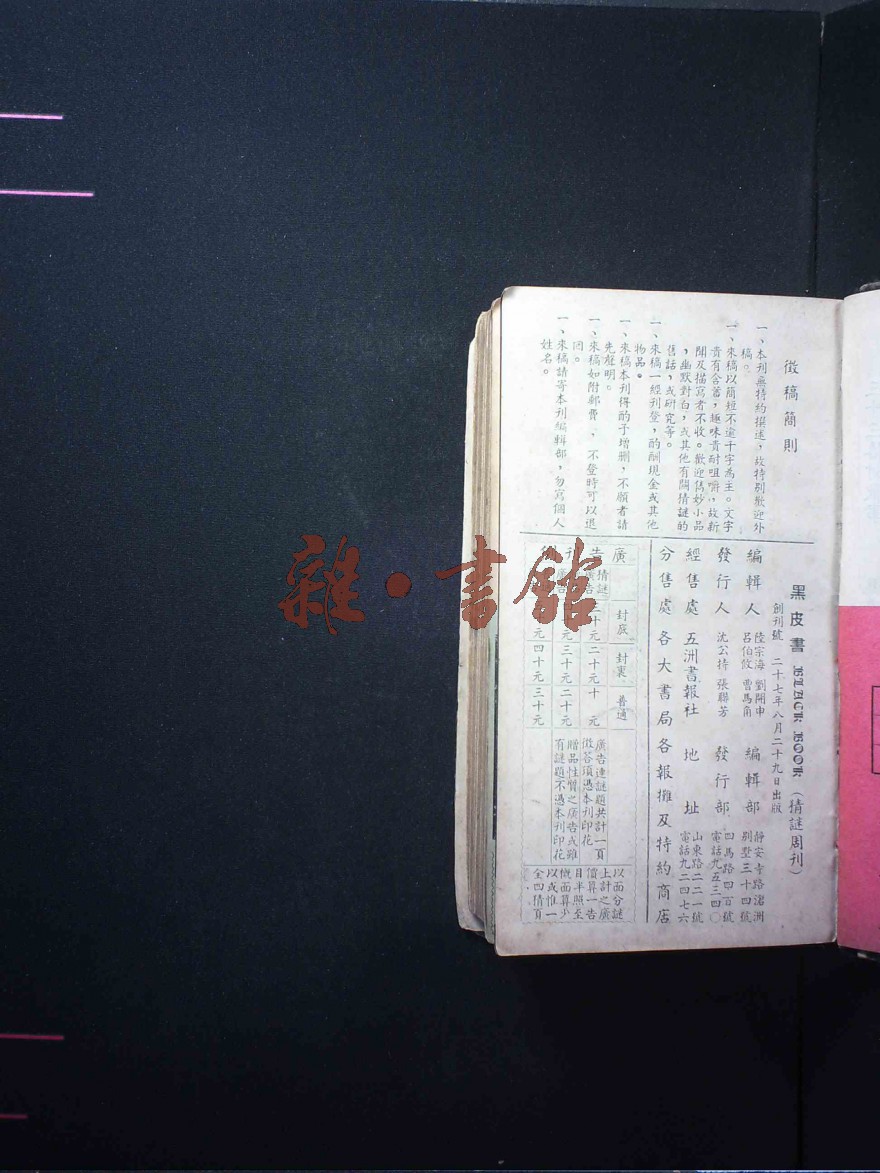 徵稿簡則
一、本刊無特約撰述，故特別歡迎外
稿。
一、來稿以簡短不逾千字為主。文字
貴有含蓄，趣味貴耐咀嚼，故新
聞及描寫者不收。歡迎雋妙小品
，幽默對白，或其他有關猜謎的
舊話，或研究等。
一、來稿一經刊登，酌酬現金或其他
物品。
一、來稿本刊得酌予增刪，不願者請
先聲明。
一、來稿如附郵費，不登時可以退
回。
一、來稿請寄本刊編輯部，勿寫個人
姓名。
黑皮書 BLACK BOOK （猜謎周刊）
創刊號 二十七年八月二十九日出版
編輯人 陸宗海 劉開申
呂伯攸 曹馬角
編輯部 靜安寺路滬洲
別墅三十四號
發行人 沈公持 張聯芳
發行部 四馬路四百號
電話九五三四〇
經售處 五洲書報社
地址 山東路二二一號
電話九二四七六
分售處 各大書局各報攤及特約商店
廣告刊
封底 封裏 普通
猜謎廣告 二十元 十元
三十元 二十元
元 四十元 三十元
廣告連謎題共計一頁
徵答須憑本刊印花
贈品性質之廣告或雖
有謎題不憑本刊印花
以面分謎
上計之廣
價算一告
目半照至
概面算少
以或惟一
全四猜頁
雜·書館